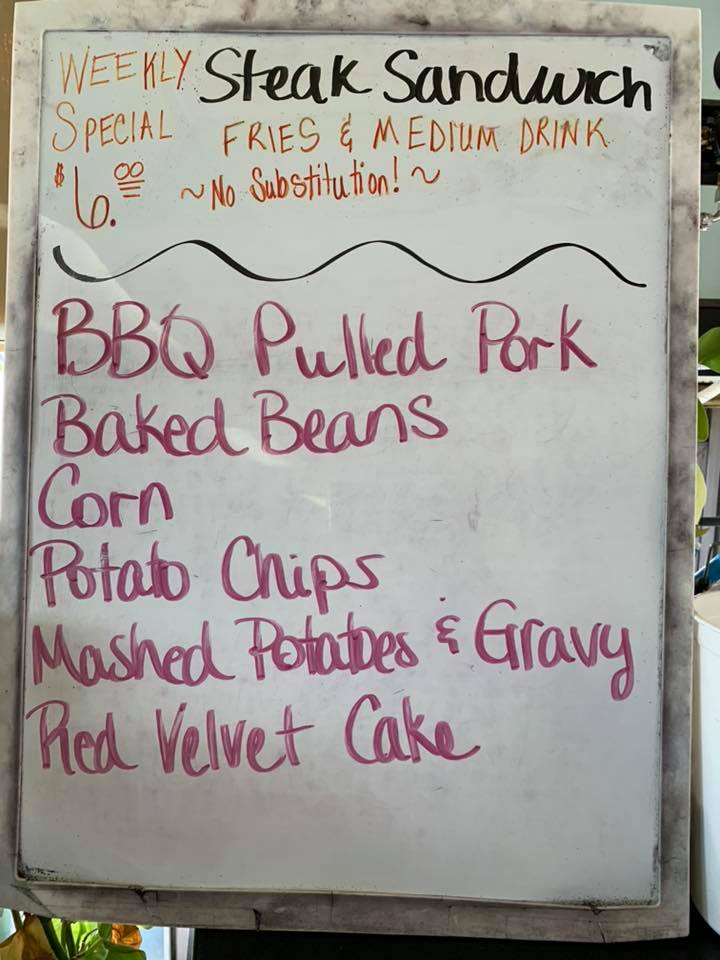 WEEKLY Steak Sandwich
SPECIAL FRIES & MEDIUM DRINK
$6.00 ~No Substitution!~
BBQ Pulled Pork
Baked Beans
Corn
Potato Chips
Mashed Potatoes & Gravy
Red Velvet Cake